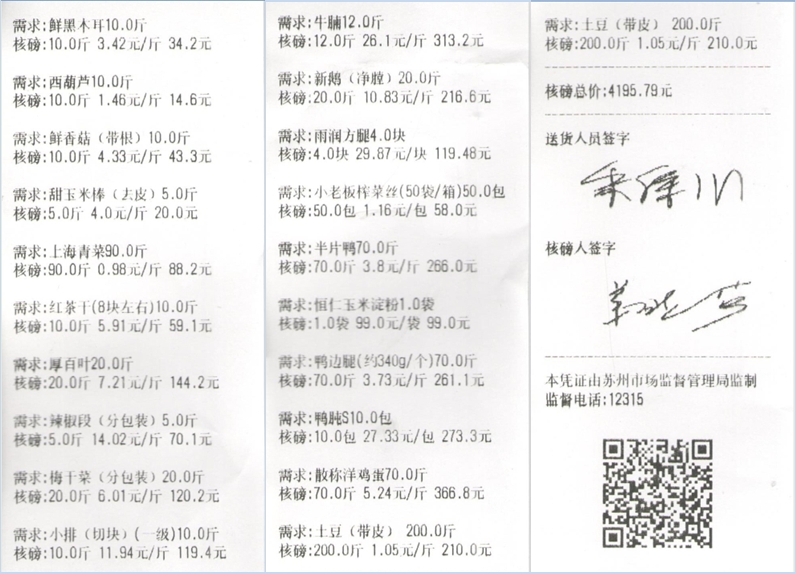 需求:鲜黑木耳10.0斤
核磅:10.0斤 3.42元/斤 34.2元
需求:西葫芦10.0斤
核磅:10.0斤 1.46元/斤 14.6元
需求:鲜香菇（带根）10.0斤
核磅:10.0斤 4.33元/斤 43.3元
需求:甜玉米棒（去皮）5.0斤
核磅:5.0斤 4.0元/斤 20.0元
需求:上海青菜90.0斤
核磅:90.0斤 0.98元/斤 88.2元
需求:红茶干(8块左右)10.0斤
核磅:10.0斤 5.91元/斤 59.1元
需求:厚百叶20.0斤
核磅:20.0斤 7.21元/斤 144.2元
需求:辣椒段（分包装）5.0斤
核磅:5.0斤 14.02元/斤 70.1元
需求:梅干菜（分包装）20.0斤
核磅:20.0斤 6.01元/斤 120.2元
需求:小排（切块）(一级)10.0斤
核磅:10.0斤 11.94元/斤 119.4元
需求:牛腩12.0斤
核磅:12.0斤 26.1元/斤 313.2元
需求:新鹅（净膛）20.0斤
核磅:20.0斤 10.83元/斤 216.6元
需求:雨润方腿4.0块
核磅:4.0块 29.87元/块 119.48元
需求:小老板榨菜丝(50袋/箱)50.0包
核磅:50.0包 1.16元/包 58.0元
需求:半片鸭70.0斤
核磅:70.0斤 3.8元/斤 266.0元
需求:恒仁玉米淀粉1.0袋
核磅:1.0袋 99.0元/袋 99.0元
需求:鸭边腿(约340g/个)70.0斤
核磅:70.0斤 3.73元/斤 261.1元
需求:鸭肫S10.0包
核磅:10.0包 27.33元/包 273.3元
需求:散称洋鸡蛋70.0斤
核磅:70.0斤 5.24元/斤 366.8元
需求:土豆（带皮） 200.0斤
核磅:200.0斤 1.05元/斤 210.0元
需求:土豆（带皮） 200.0斤
核磅:200.0斤 1.05元/斤 210.0元
核磅总价:4195.79元
送货人员签字
核磅人签字
本凭证由苏州市场监督管理局监制
监督电话:12315